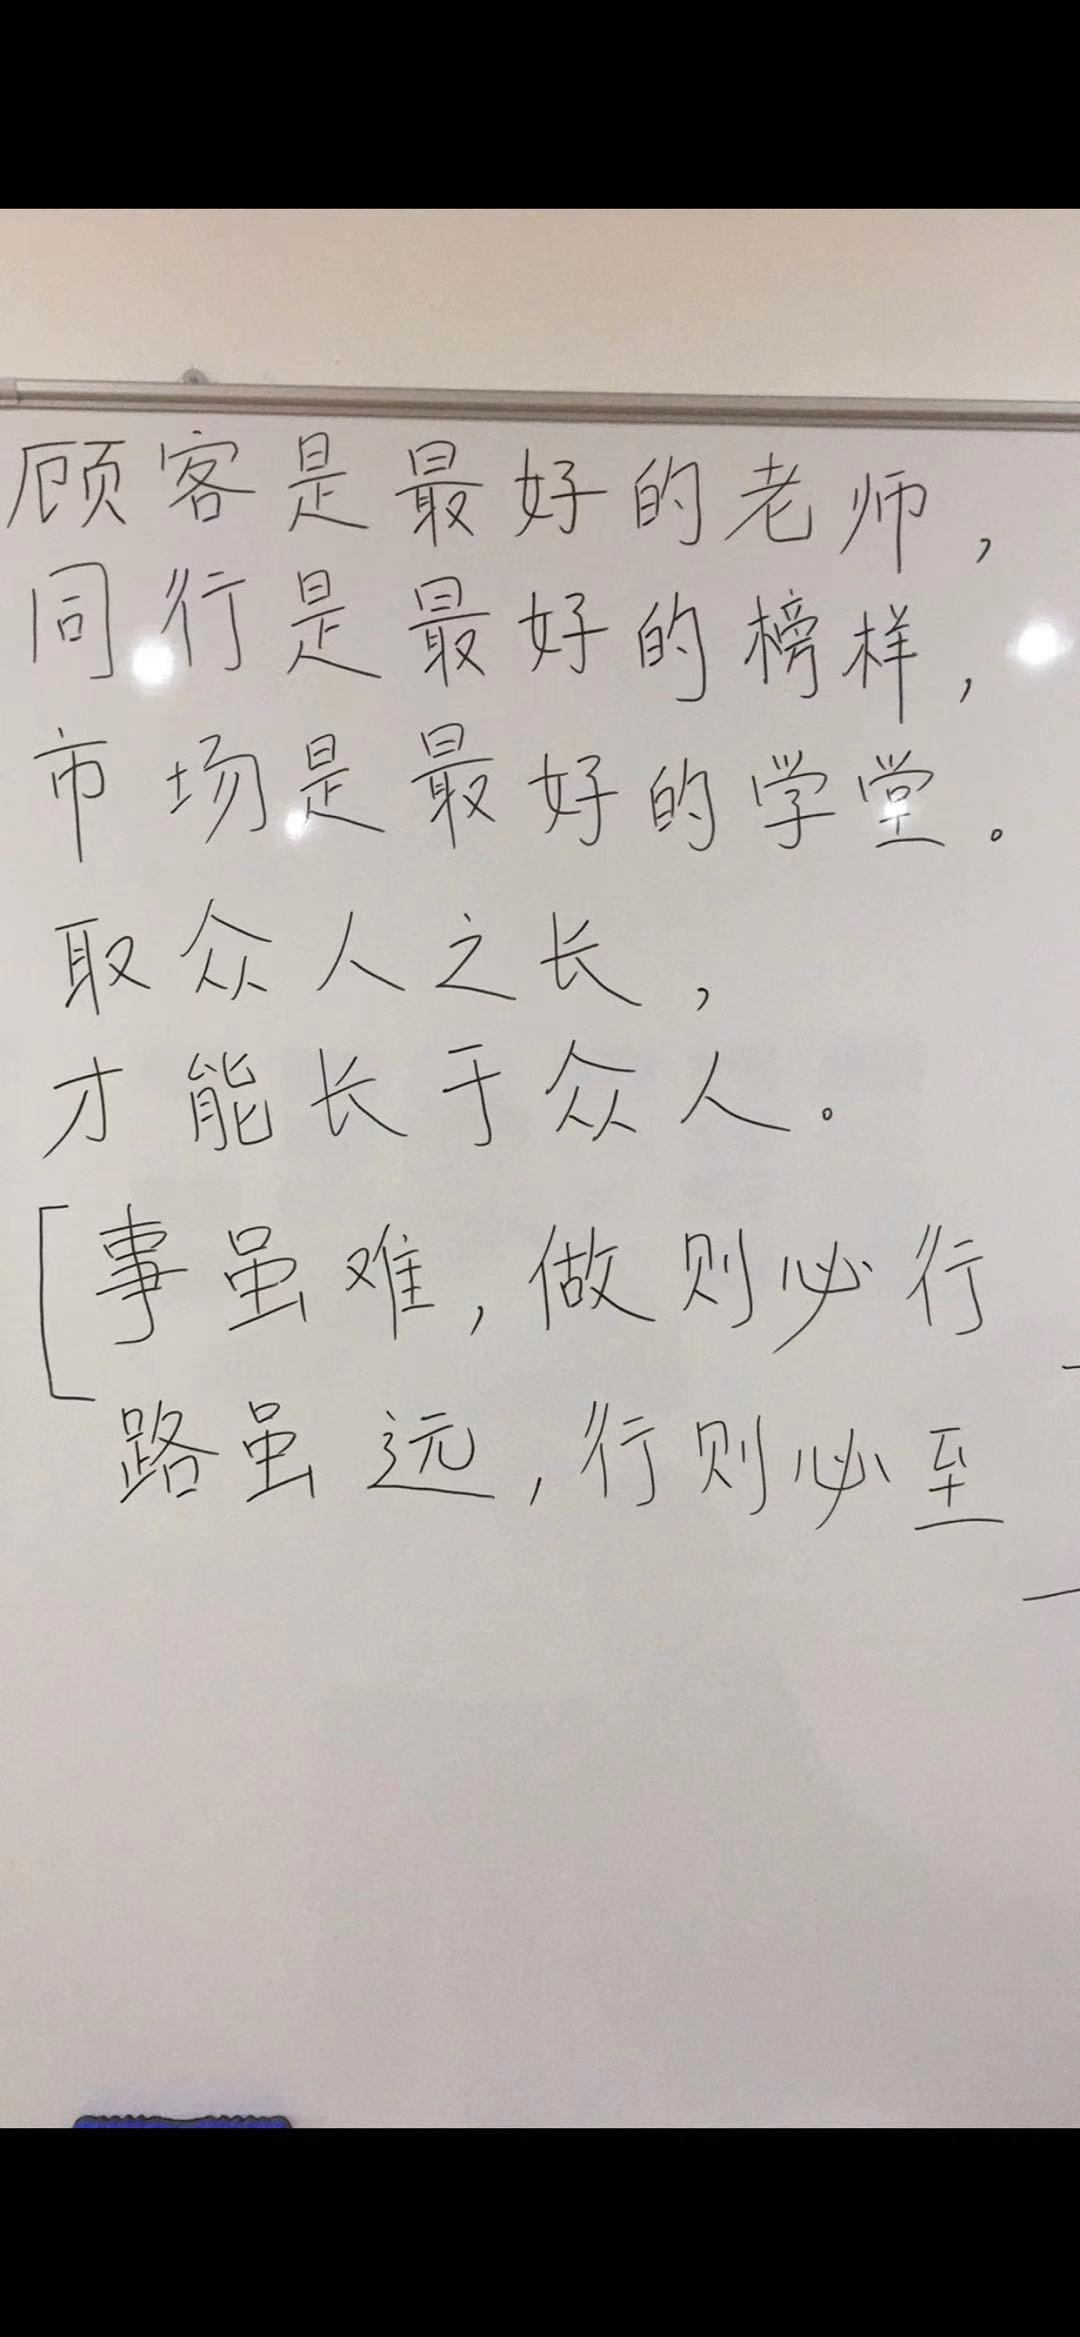 顾客是最好的老师，
同行是最好的榜样，
市场是最好的学堂。
取众人之长，
才能长于众人。
[事虽难，做则必行
路虽远，行则必至